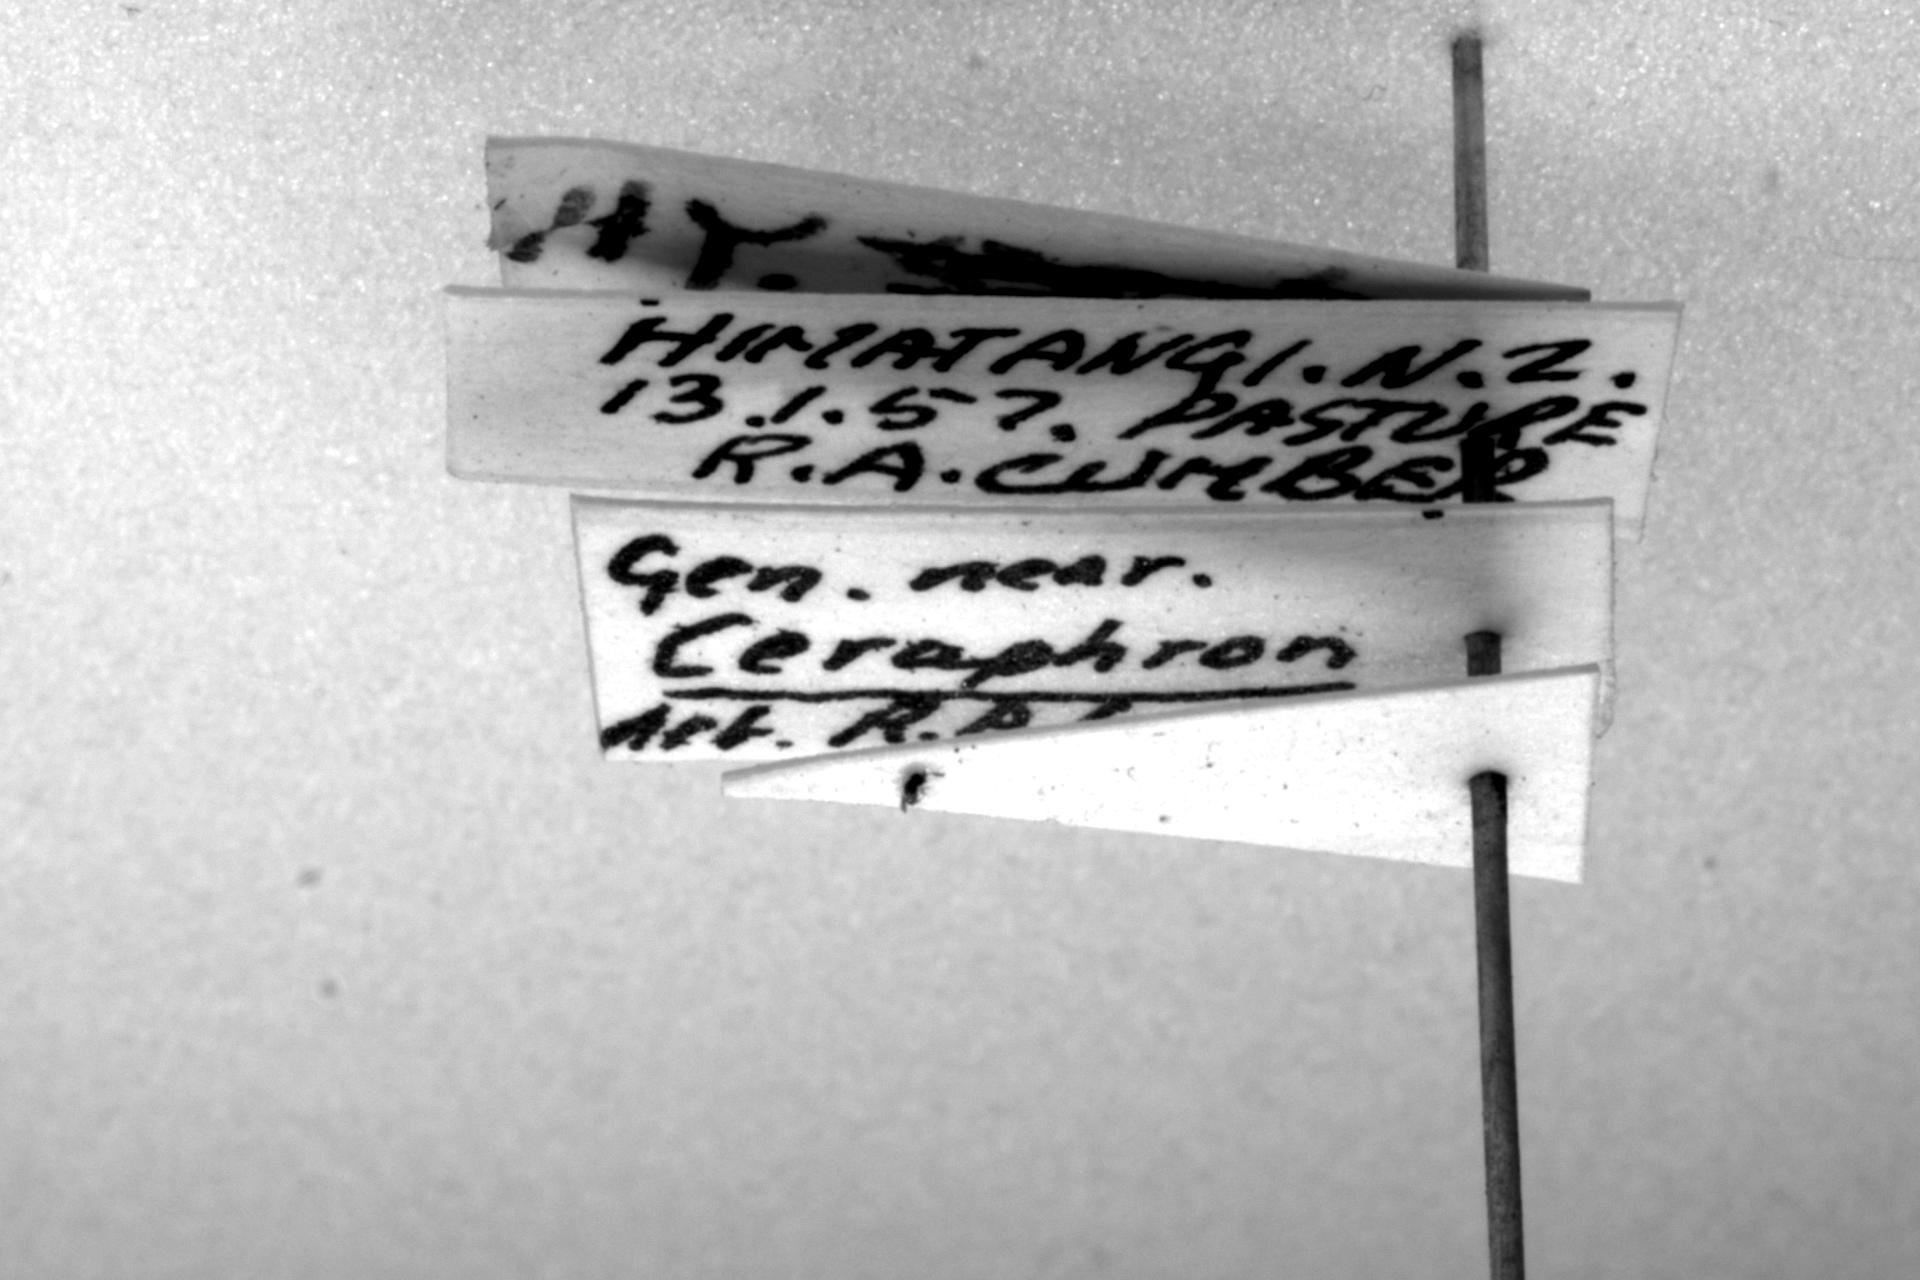 HY.
HIMATANGI. N.Z.
13.1.57. PASTURE
R.A. CUMBER
Gen. near.
Ceraphron
det. R.A.